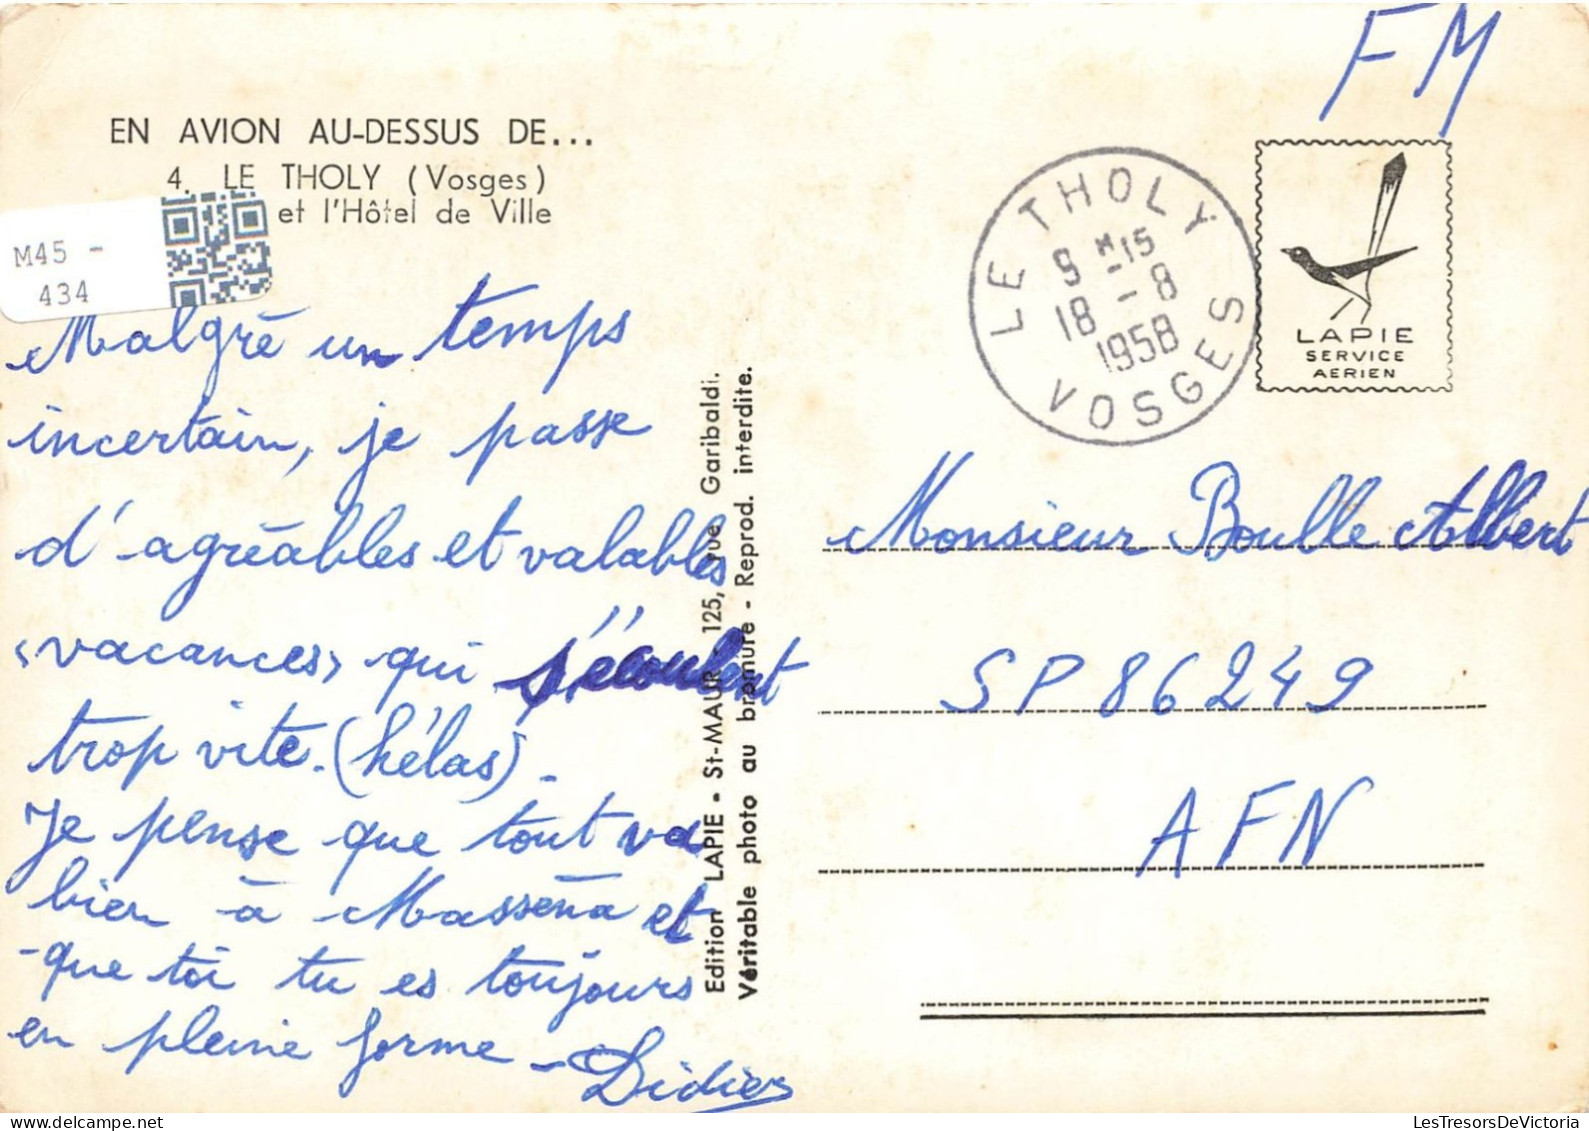 FM
EN AVION AU-DESSUS DE...
4. LE THOLY (Vosges)
et l'Hôtel de Ville
M45 -
434
LE THOLY
9 H 15
18 - 8
1958
VOSGES
LAPIE
SERVICE
AERIEN
Malgré un temps
incertain, je passe
d'agréables et valables
"vacances" qui s'écoulent
trop vite. (hélas).
Je pense que tout va
bien à Masséna et
que toi tu es toujours
en pleine forme -
Didier
Edition LAPIE - St-MAUR 125, rue Garibaldi.
Véritable photo au bromure - Reprod. interdite.
Monsieur Boulle Albert
SP 86249
AFN
LesTresorsDeVictoria